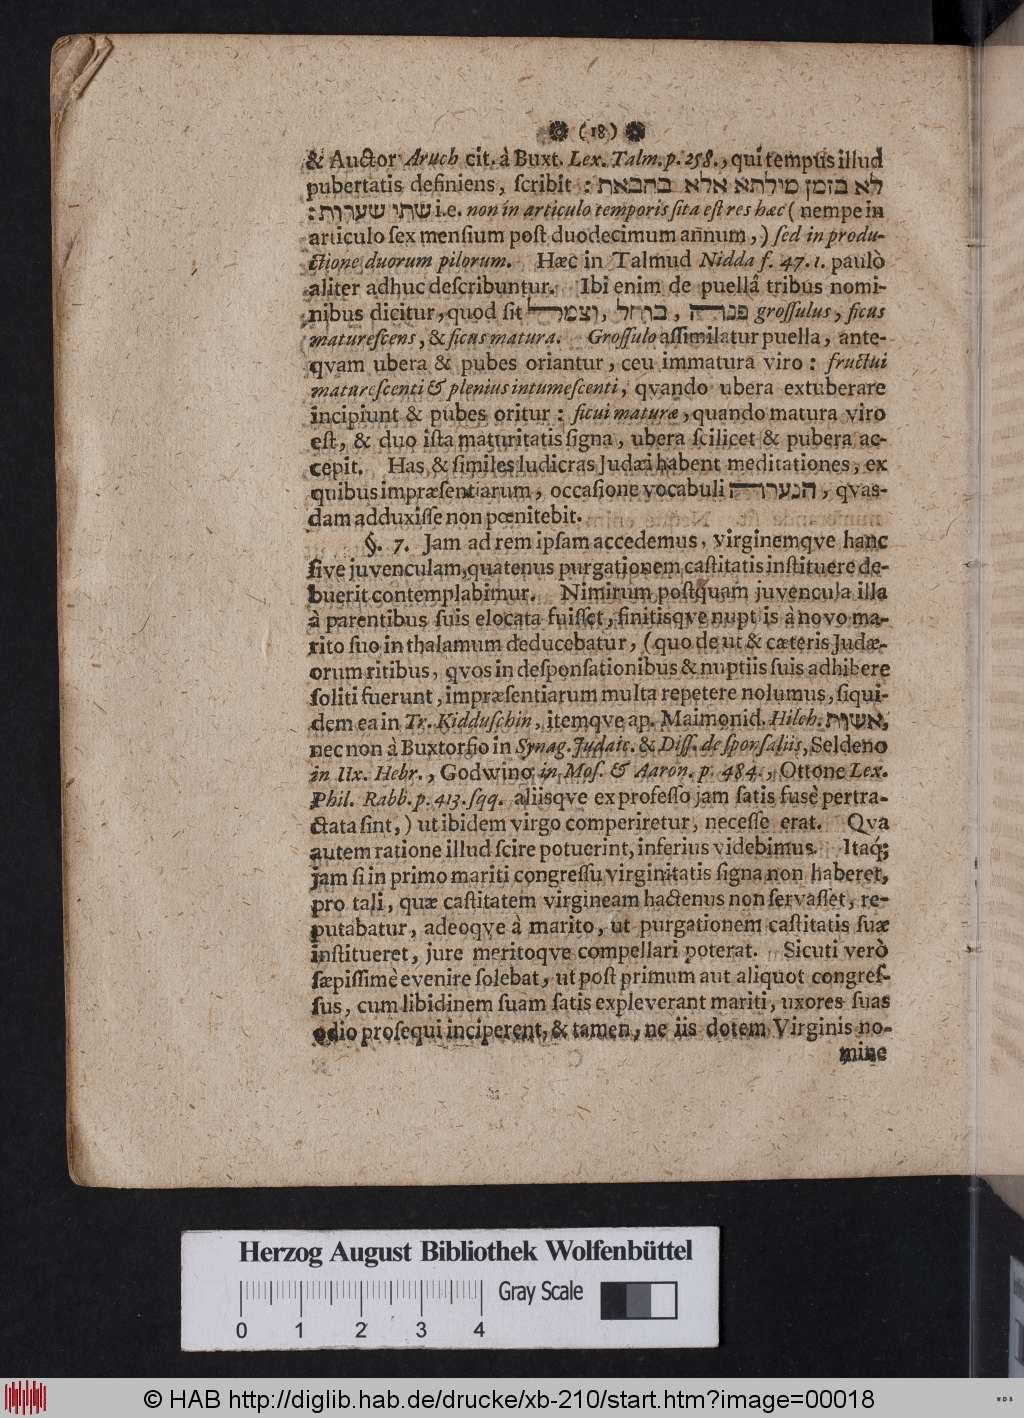 (18)
& Auctor Aruch cit. à Buxt. Lex. Talm. p. 258., qui tempus illud
pubertatis definiens, ſcribit : לא בזמן מילתא אלא בהבאת
שתי שערות : i.e. non in articulo temporis ſita eſt res hæc ( nempe in
articulo ſex menſium poſt duodecimum annum, ) ſed in produ-
ctione duorum pilorum. Hæc in Talmud Nidda f. 47. 1. paulò
aliter adhuc deſcribuntur. Ibi enim de puellâ tribus nomi-
nibus dicitur, quod ſit פגה, בוחל, וצמל groſſulus, ficus
matureſcens, & ficus matura. Groſſulo aſſimilatur puella, ante-
qvam ubera & pubes oriantur, ceu immatura viro : fructui
matureſcenti & plenius intumeſcenti, qvando ubera extuberare
incipiunt & pubes oritur : ficui maturæ, quando matura viro
eſt, & duo iſta maturitatis ſigna, ubera ſcilicet & pubera ac-
cepit. Has & ſimiles ludicras Judæi habent meditationes, ex
quibus impræſentiarum, occaſione vocabuli הנערה, qvas-
dam adduxiſſe non pœnitebit.
§. 7. Jam ad rem ipſam accedemus, virginemqve hanc
ſive juvenculam, quatenus purgationem caſtitatis inſtituere de-
buerit contemplabimur. Nimirum poſtquam juvencula illa
à parentibus ſuis elocata fuiſſet, finitisqve nupt is à novo ma-
rito ſuo in thalamum deducebatur, (quo de ut & cæteris Judæ-
orum ritibus, qvos in deſponſationibus & nuptiis ſuis adhibere
ſoliti fuerunt, impræſentiarum multa repetere nolumus, ſiqui-
dem ea in Tr. Kidduſchin, itemqve ap. Maimonid. Hilch. אשות,
nec non à Buxtorfio in Synag. Judaic. & Diſſ. de ſponſaliis, Seldeno
in Ux. Hebr., Godwino in Moſ. & Aaron. p. 484., Ottone Lex.
Phil. Rabb. p. 413. ſqq. aliisqve ex profeſſo jam ſatis fusè pertra-
ctata ſint, ) ut ibidem virgo comperiretur, neceſſe erat. Qva
autem ratione illud ſcire potuerint, inferius videbimus. Itaq́;
jam ſi in primo mariti congreſſu virginitatis ſigna non haberet,
pro tali, quæ caſtitatem virgineam hactenus non ſervaſſet, re-
putabatur, adeoqve à marito, ut purgationem caſtitatis ſuæ
inſtitueret, jure meritoqve compellari poterat. Sicuti verò
ſæpiſſimè evenire ſolebat, ut poſt primum aut aliquot congreſ-
ſus, cum libidinem ſuam ſatis expleverant mariti, uxores ſuas
odio proſequi inciperent, & tamen, ne iis dotem Virginis no-
mine
Herzog August Bibliothek Wolfenbüttel
Gray Scale
0 1 2 3 4
© HAB http://diglib.hab.de/drucke/xb-210/start.htm?image=00018